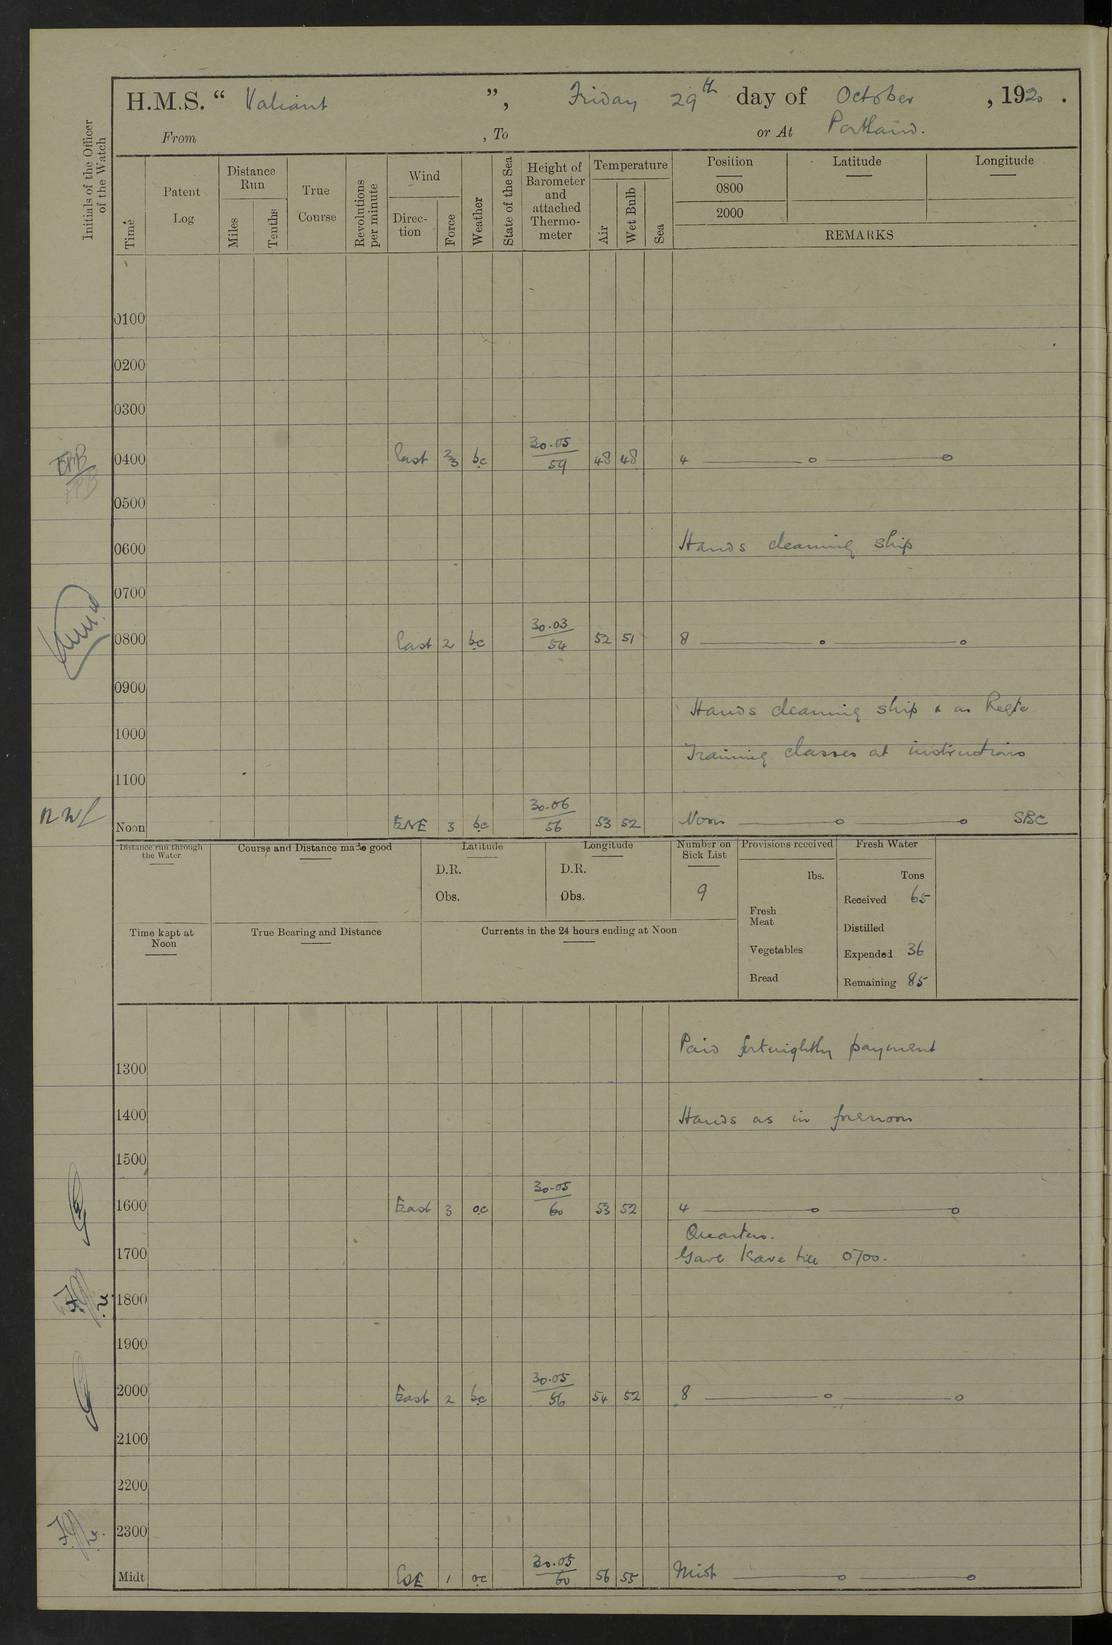 H.M.S. “ Valiant ”, Friday 29th day of October , 1920 .
From , To or At Portland.
Initials of the Officer of the Watch
Time
Patent Log
Distance Run
Miles
Tenths
True Course
Revolutions per minute
Wind
Direction
Force
Weather
State of the Sea
Height of Barometer and attached Thermometer
Temperature
Air
Wet Bulb
Sea
Position
0800
2000
Latitude
Longitude
REMARKS
0100
0200
0300
0400 East 2/3 bc 30.05/59 48 48 4 —— o —— o
0500
0600 Hands cleaning ship
0700
0800 East 2 bc 30.03/54 52 51 8 —— o —— o
0900
Hands cleaning ship & as Reqte
1000 Training classes at instructions
1100
Noon ENE 3 bc 30.06/56 53 52 Noon —— o —— o SBC
Distance run through the Water
Course and Distance made good
Latitude
D.R.
Obs.
Longitude
D.R.
Obs.
Number on Sick List
9
Provisions received
lbs.
Fresh Meat
Vegetables
Bread
Fresh Water
Tons
Received 65
Distilled
Expended 36
Remaining 85
Time kept at Noon
True Bearing and Distance
Currents in the 24 hours ending at Noon
Paid fortnightly payment
1300
1400 Hands as in forenoon
1500
1600 East 3 oc 30.05/60 53 52 4 —— o —— o
Quarters.
1700 Gave leave till 0700.
1800
1900
2000 East 2 bc 30.05/56 54 52 8 —— o —— o
2100
2200
2300
Midt ESE 1 oc 30.05/60 56 55 Midt —— o —— o